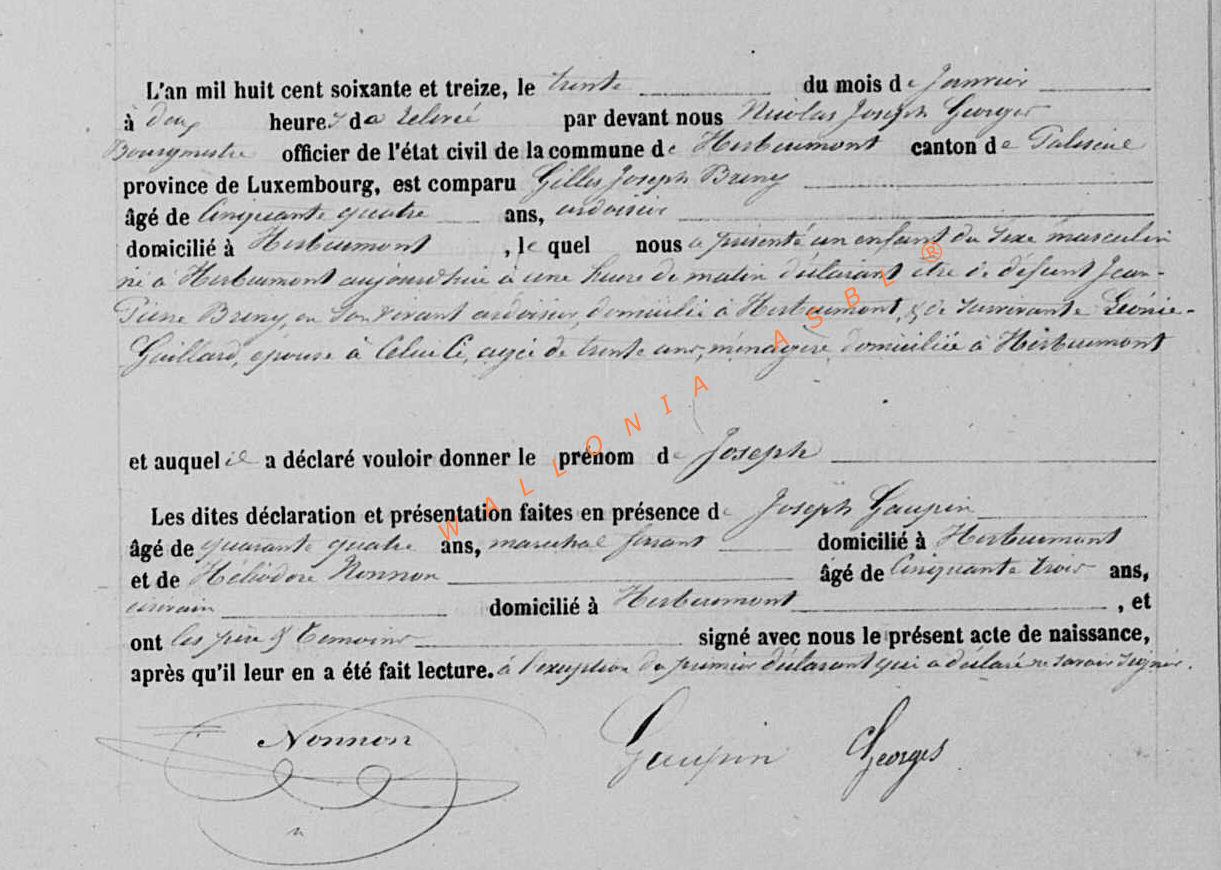 L'an mil huit cent soixante et treize, le trente du mois de Janvier
à deux heures de relevé par devant nous Nicolas Joseph Georges
Bourgmestre officier de l'état civil de la commune de Herbeumont canton de Paliseul
province de Luxembourg, est comparu Gilles Joseph Breny
âgé de Cinquante quatre ans, ardoisier
domicilié à Herbeumont, le quel nous a présenté un enfant du sexe masculin
né à Herbeumont aujourd'hui à une heure de matin déclarant être de défunt Jean-
Pierre Breny, en son vivant ardoisier, domicilié à Herbeumont, & de survivante Léonie
Guillard, épouse à Celui Ci, agée de trente ans, ménagère, domiciliée à Herbeumont
et auquel il a déclaré vouloir donner le prénom de Joseph
Les dites déclaration et présentation faites en présence de Joseph Gaupin
âgé de quarante quatre ans, marechal ferrant domicilié à Herbeumont
et de Héliodore Nonnon âgé de Cinquante trois ans,
domicilié à Herbeumont, et
ont les père & temoins signé avec nous le présent acte de naissance,
après qu'il leur en a été fait lecture. à l'exception du premier déclarant qui a déclaré ne savoir signer.
Nonnon Gaupin Georges
WALLONIA ASBL ®